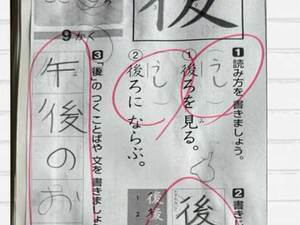 後
9かく
1 読み方を 書きましょう。
(うし)
① 後ろを見る。
(うし)
② 後ろに ならぶ。
2 書き
後
1 後
2 後
3 「後」の つく ことばや 文を 書きましょ
午後のお